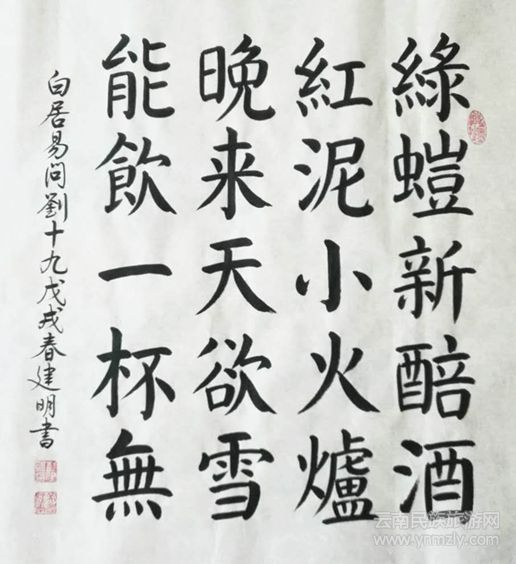 綠螘新醅酒
紅泥小火爐
晚来天欲雪
能飲一杯無
白居易问劉十九戊戌春建明書
云南民族旅游网
www.ynmzly.com